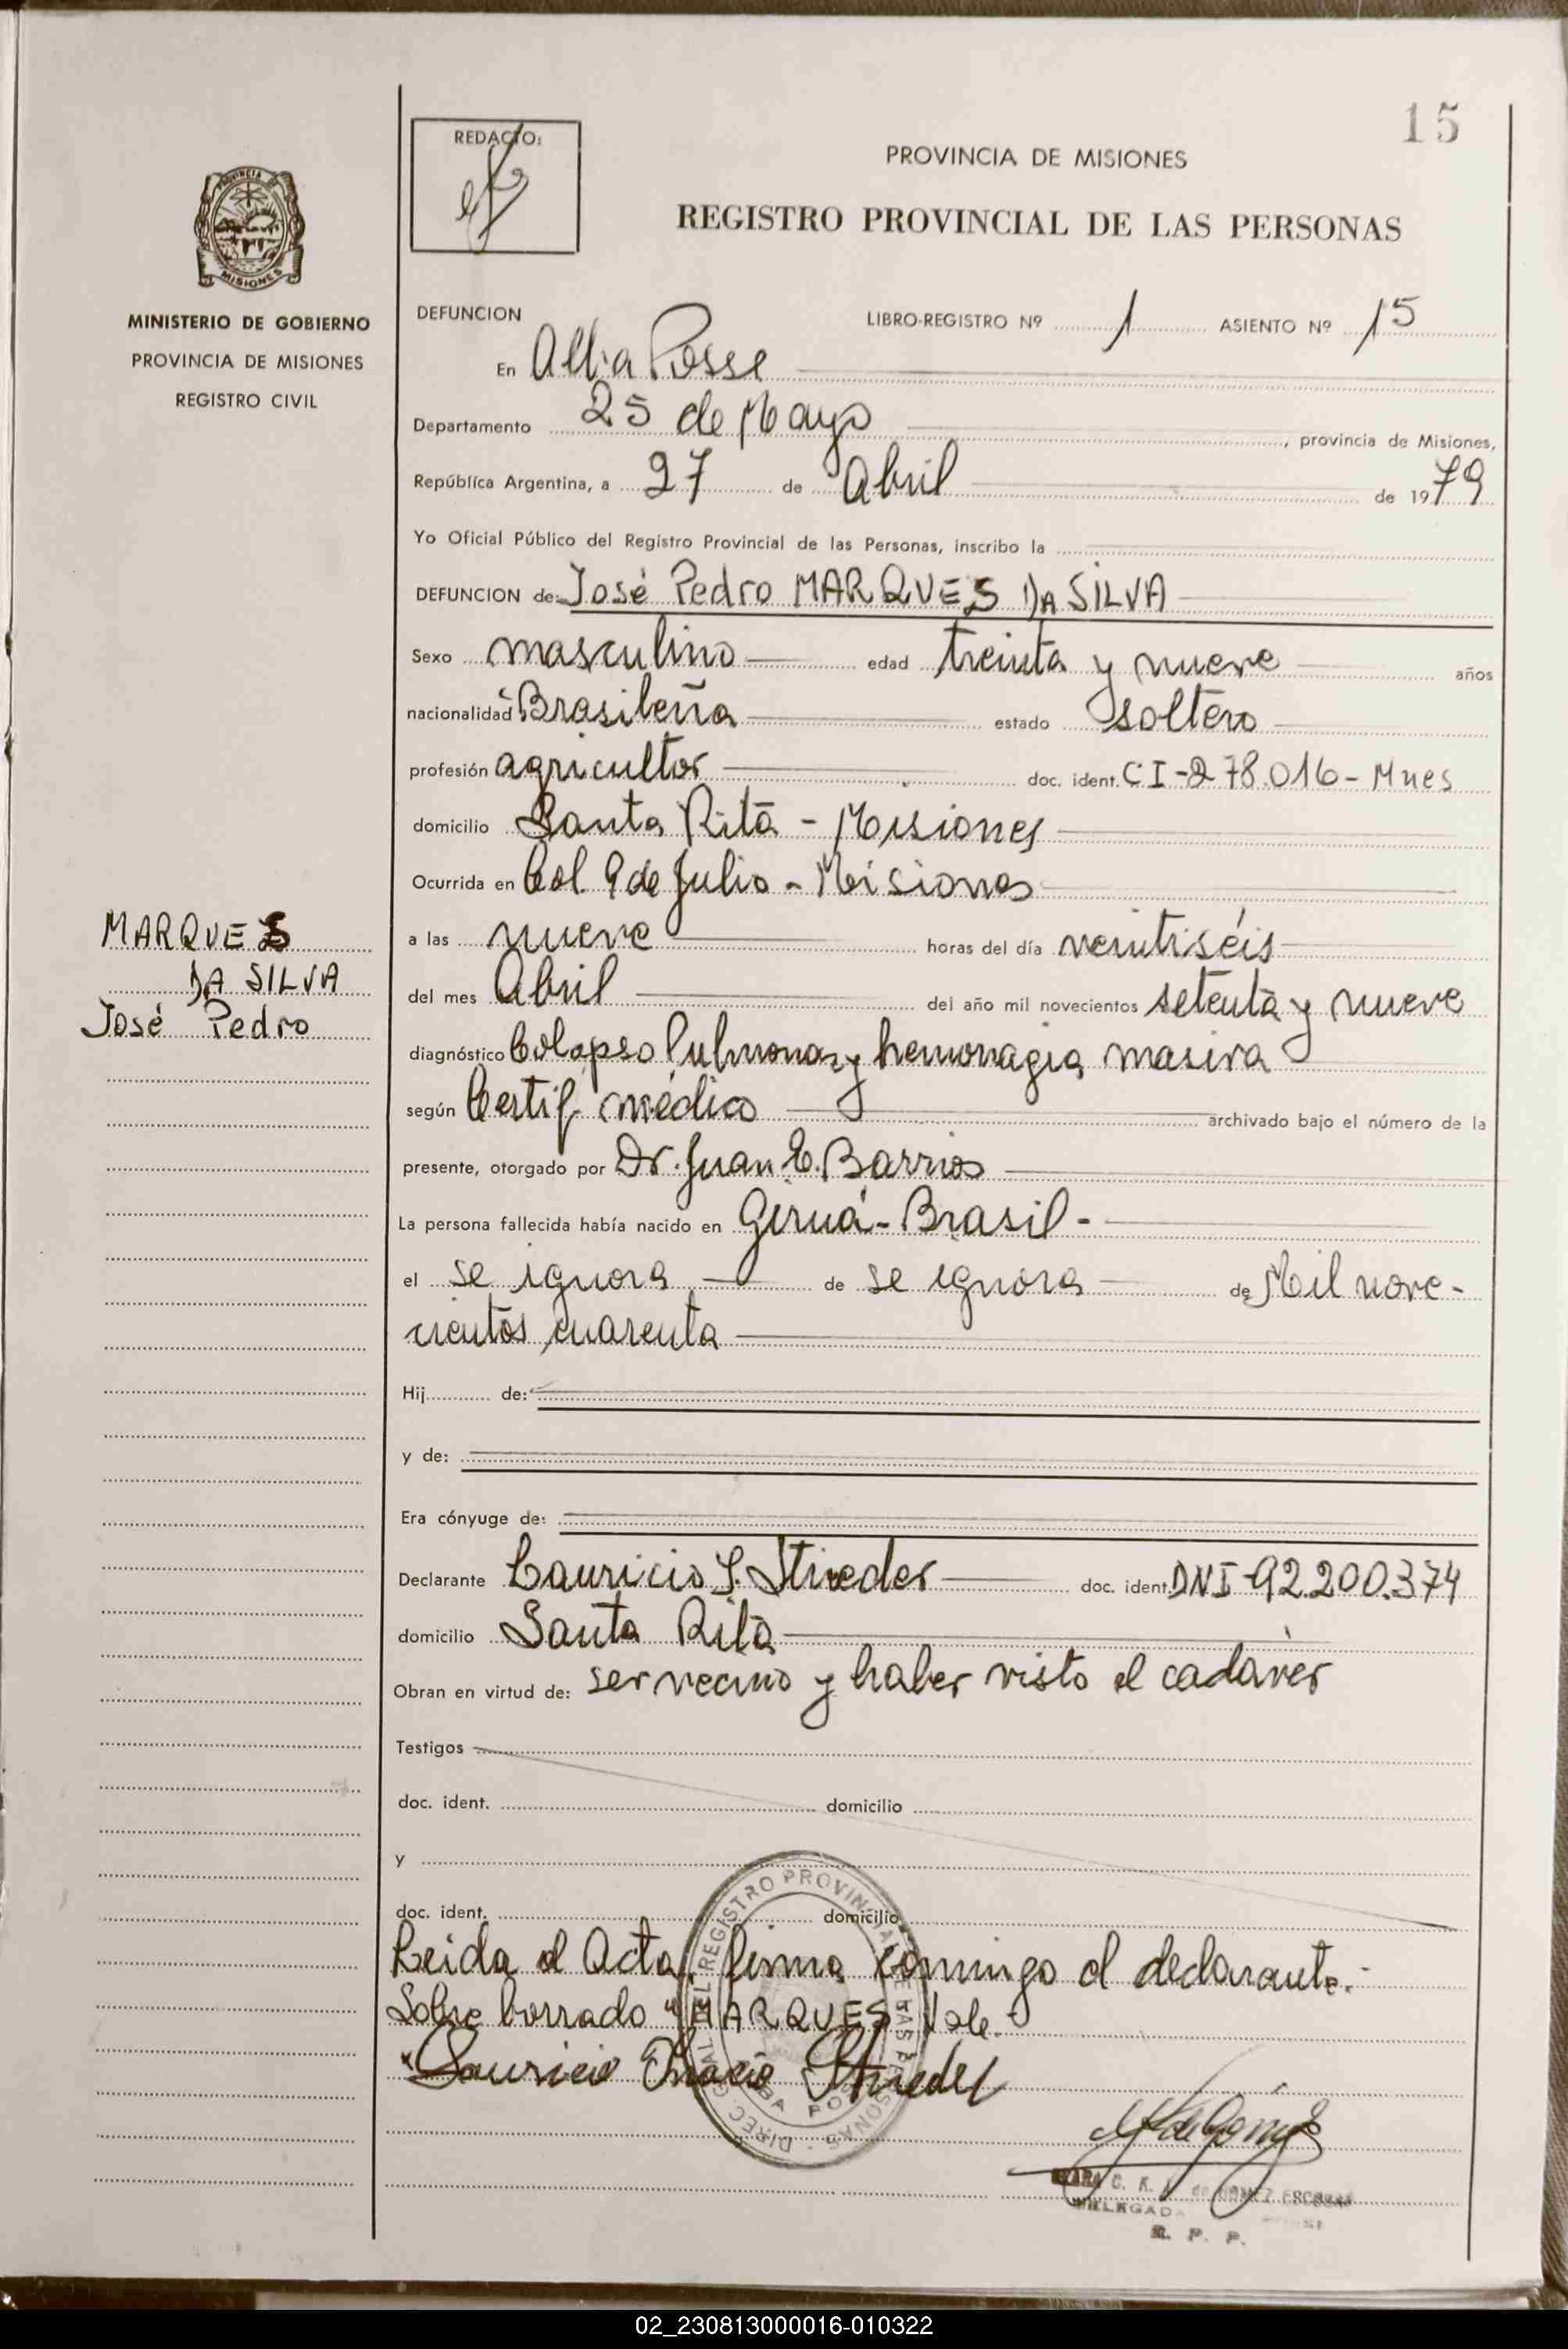 15
REDACTO:
PROVINCIA DE MISIONES
REGISTRO PROVINCIAL DE LAS PERSONAS
PROVINCIA DE
MISIONES
MINISTERIO DE GOBIERNO
PROVINCIA DE MISIONES
REGISTRO CIVIL
DEFUNCION LIBRO-REGISTRO Nº 1 ASIENTO Nº 15
En Alba Posse
Departamento 25 de Mayo, provincia de Misiones,
República Argentina, a 27 de Abril de 1979
Yo Oficial Público del Registro Provincial de las Personas, inscribo la
DEFUNCION de: José Pedro MARQUES DA SILVA
Sexo masculino edad treinta y nueve años
nacionalidad Brasileña estado soltero
profesión agricultor doc. ident. CI-278.016-Mnes
domicilio Santa Rita - Misiones
Ocurrida en Col. 9 de Julio - Misiones
MARQUES
DA SILVA
José Pedro
a las nueve horas del día veintiséis
del mes Abril del año mil novecientos setenta y nueve
diagnóstico Colapso Pulmonar y hemorragia masiva
según Certif. médico archivado bajo el número de la
presente, otorgado por Dr. Juan E. Barrios
La persona fallecida había nacido en Giruá - Brasil -
el se ignora de se ignora de Mil nove-
cientos cuarenta
Hij de:
y de:
Era cónyuge de:
Declarante Lauricio I. Strieder doc. ident. DNI-92.200.374
domicilio Santa Rita
Obran en virtud de: ser vecino y haber visto el cadáver
Testigos
doc. ident. domicilio
y
doc. ident. domicilio
Leida el Acta, firma conmingo el declarante.-
Sobre borrado "MARQUES" Vale.-
Lauricio Inacio Strieder
DIREC. GRAL. DEL REGISTRO PROVINCIAL DE LAS PERSONAS
ALBA POSSE
C. K. de GOMEZ ESCOBAR
DELEGADA
R. P. P.
02_230813000016-010322